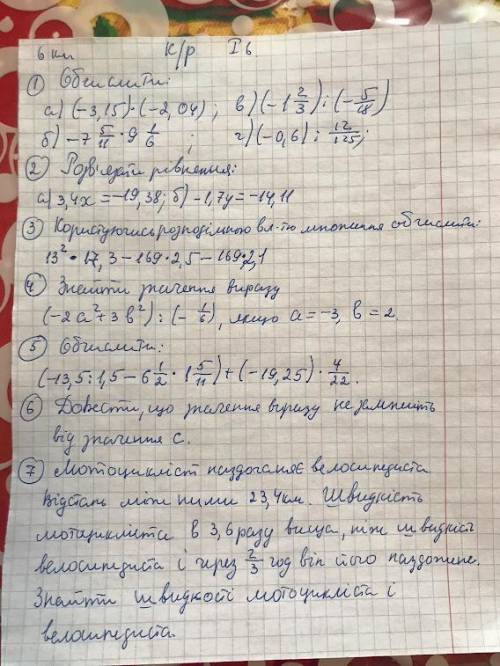 6 кл К/р І в.
① Обчислити:
а) (-3,15)·(-2,04); в) (-1 2/3) : (-5/18)
б) -7 5/11 · 9 1/6 ; г) (-0,6) : 12/125;
② Розв'язати рівняння:
а) 3,4x = -19,38; б) -1,7y = -14,11
③ Користуючись розподільною вл-тю множення обчислити:
13² · 17,3 - 169 · 2,5 - 169 · 2,1
④ Знайти значення виразу
(-2a² + 3b²) : (-1/6), якщо a = -3, b = 2.
⑤ Обчислити:
(-13,5 : 1,5 - 6 1/2 · 1 5/11) + (-19,25) · 4/22.
⑥ Довести, що значення виразу не залежить
від значення c.
⑦ Мотоцикліст наздоганяє велосипедиста
Відстань між ними 23,4 км. Швидкість
мотоцикліста в 3,6 разу вища, ніж швидкість
велосипедиста і через 2/3 год він його наздожене.
Знайти швидкості мотоцикліста і
велосипедиста.